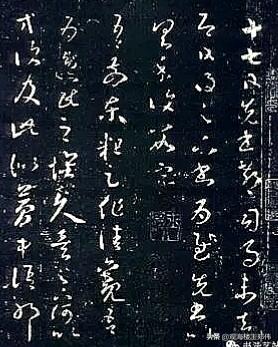 十七日先書郗司馬未去
即日得足下書為慰先書以
具示復數字
吾前東粗足作佳觀吾
為逸民之懷久矣足下何以
方復及此似夢中語耶
头条 @观海楼主郑伟